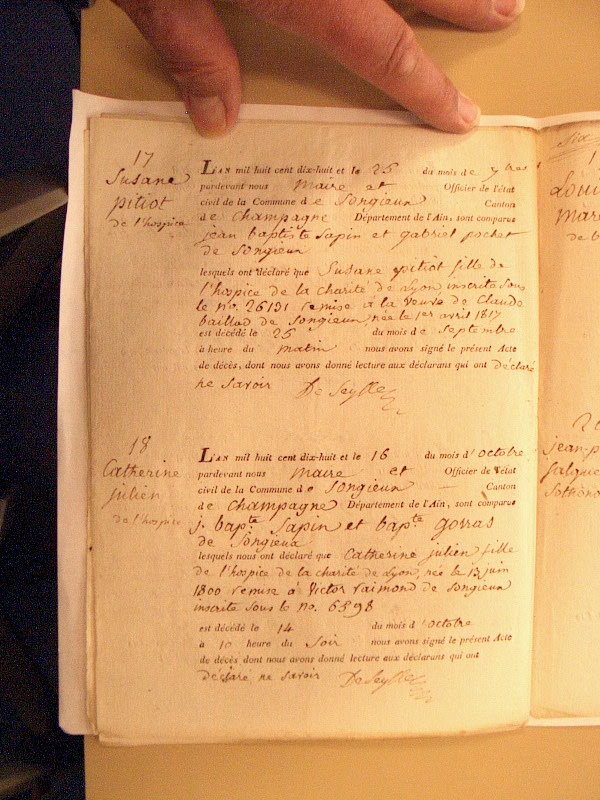 17
Susane
pitiot
de l'hospice
L'AN mil huit cent dix-huit et le 25 du mois de 7bre
pardevant nous Maire et Officier de l'état
civil de la Commune de Songieux Canton
de Champagne Département de l'Ain, sont comparus
jean baptiste Sapin et gabriel pochet
de Songieux
lesquels ont déclaré que Susane pitiot fille de
l'hospice de la charité de Lyon inscrite sous
le no. 26131 remise a la veuve de Claude
baillod de Songieux née le 1er avril 1817
est décédé le 25 du mois de Septembre
à heure du matin nous avons signé le présent Acte
de décès, dont nous avons donné lecture aux déclarans qui ont déclaré
ne savoir DeSeyssel
18
Catherine
julien
de l'hospice
L'AN mil huit cent dix-huit et le 16 du mois d'octobre
pardevant nous Maire et Officier de l'état
civil de la Commune de Songieux Canton
de Champagne Département de l'Ain, sont comparus
j. bapte Sapin et bapte gorras
de Songieux
lesquels nous ont déclaré que Catherine julien fille
de l'hospice de la charité de Lyon, née le 13 juin
1800 remise a Victor raimond de Songieux
inscrite sous le no. 6598
est décédé le 14 du mois d'octobre
à 10 heure du Soir nous avons signé le présent Acte
de décès dont nous avons donné lecture aux déclarans qui ont
déclaré ne savoir DeSeyssel
Six
Loui
Mare
de b
20
jean-p
Sothono